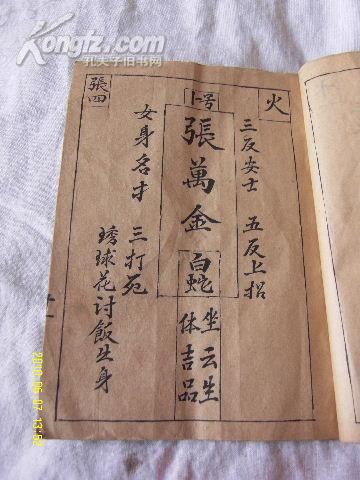 Kongfz.com
孔夫子旧书网
火
三反安士 五反上招
卜号
張萬金
白蛇
坐云生
体吉品
張四
女身名才 三打死
琇球花讨飯出身
2010 06 07 13:52